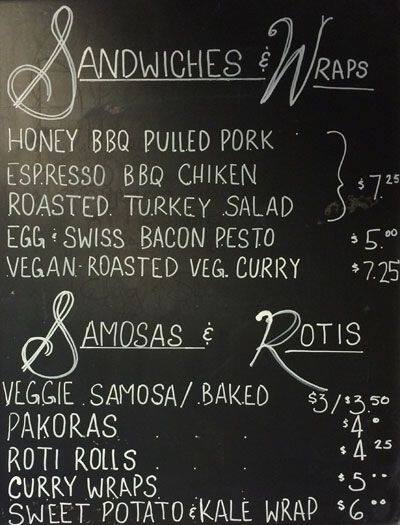 SANDWICHES & WRAPS
HONEY BBQ PULLED PORK
ESPRESSO BBQ CHIKEN $7.25
ROASTED TURKEY SALAD
EGG & SWISS BACON PESTO $5.00
VEGAN-ROASTED VEG. CURRY $7.25
SAMOSAS & ROTIS
VEGGIE SAMOSA/BAKED $3/$3.50
PAKORAS $4.0
ROTI ROLLS $4.25
CURRY WRAPS $5..
SWEET POTATO & KALE WRAP $6.00